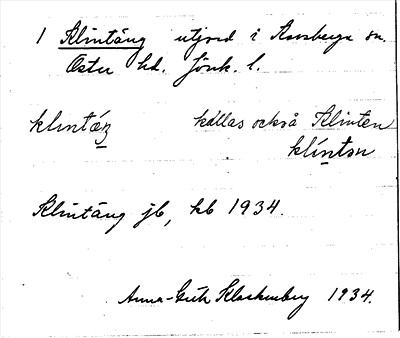 1 Klintäng utjord i Barsberga sn.
Östra hd. Jönk. l.
klıntäŋ kallas också Klinten
klı́ntən
Klintäng jb, kb 1934.
Anna-Greta Klackenberg 1934.